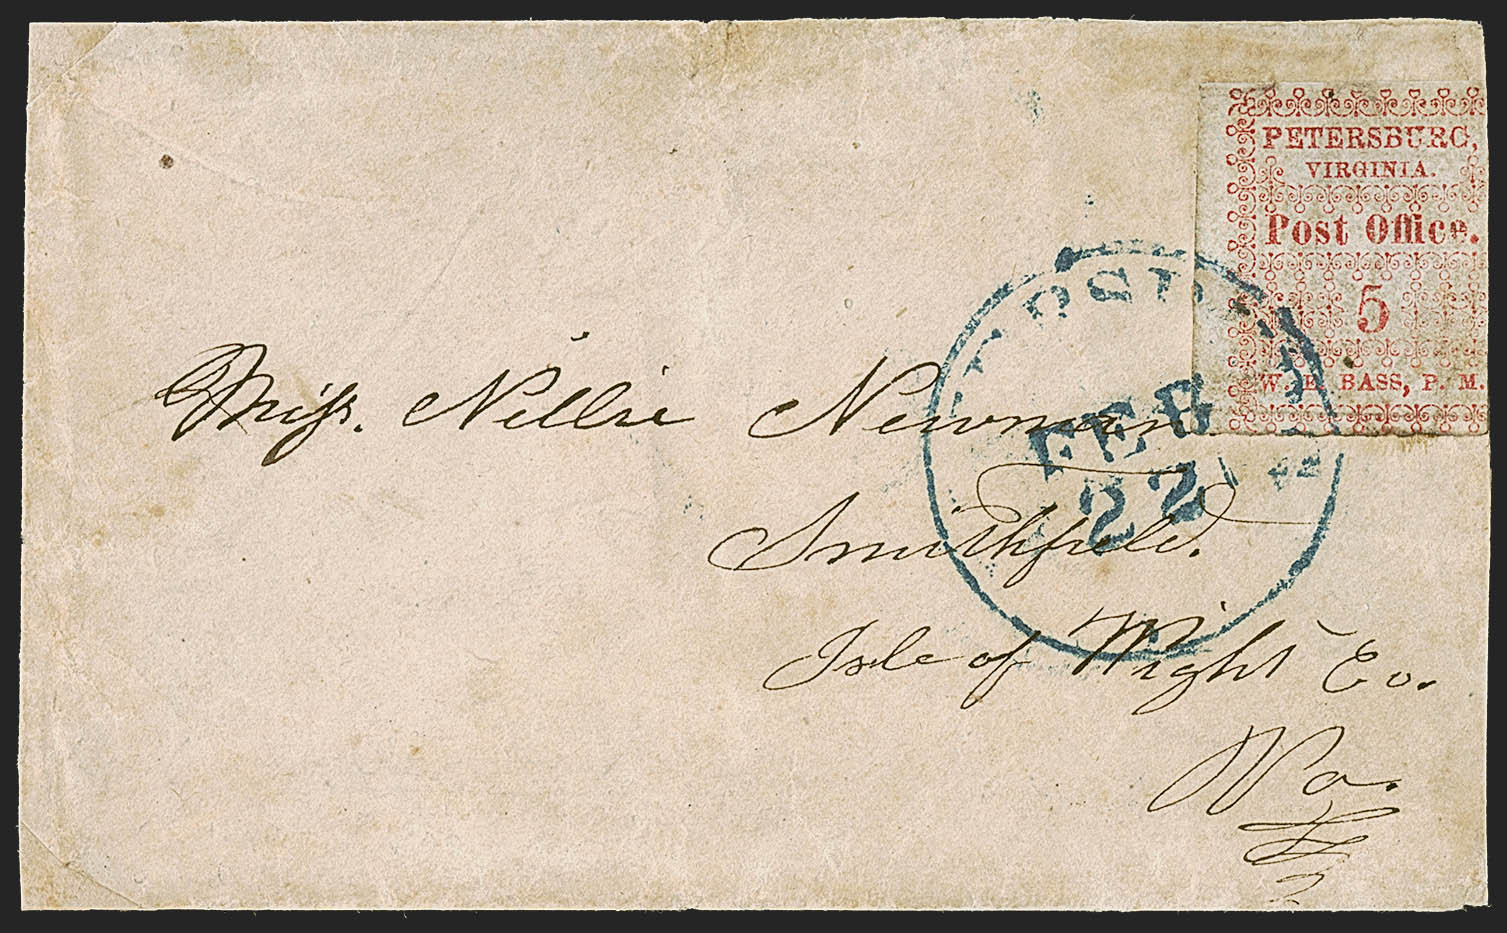 PETERSBURG,
VIRGINIA.
Post Office.
5
W. E. BASS, P. M.
FEB
22
Miss. Nellie Newman
Smithfield.
Isle of Wight Co.
Va.